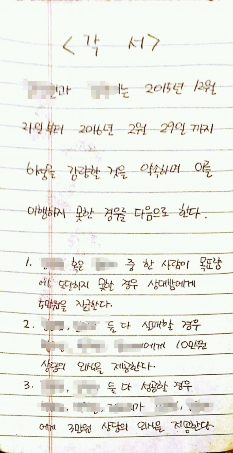 <각 서>
과 는 2015년 12월
21일부터 2016년 2월 29일까지
감량할 것을 약속하며 이를
이행하지 못한 경우 다음으로 한다.
1. 혹은 중 한 사람이 목표량
에 도달하지 못한 경우 상대방에게
5만원을 지급한다.
2. , 둘 다 실패할 경우
, 에게 10만원
상당의 외식을 제공한다.
3. , 둘 다 성공한 경우
, , 가 ,
에게 3만원 상당의 외식을 지급한다.